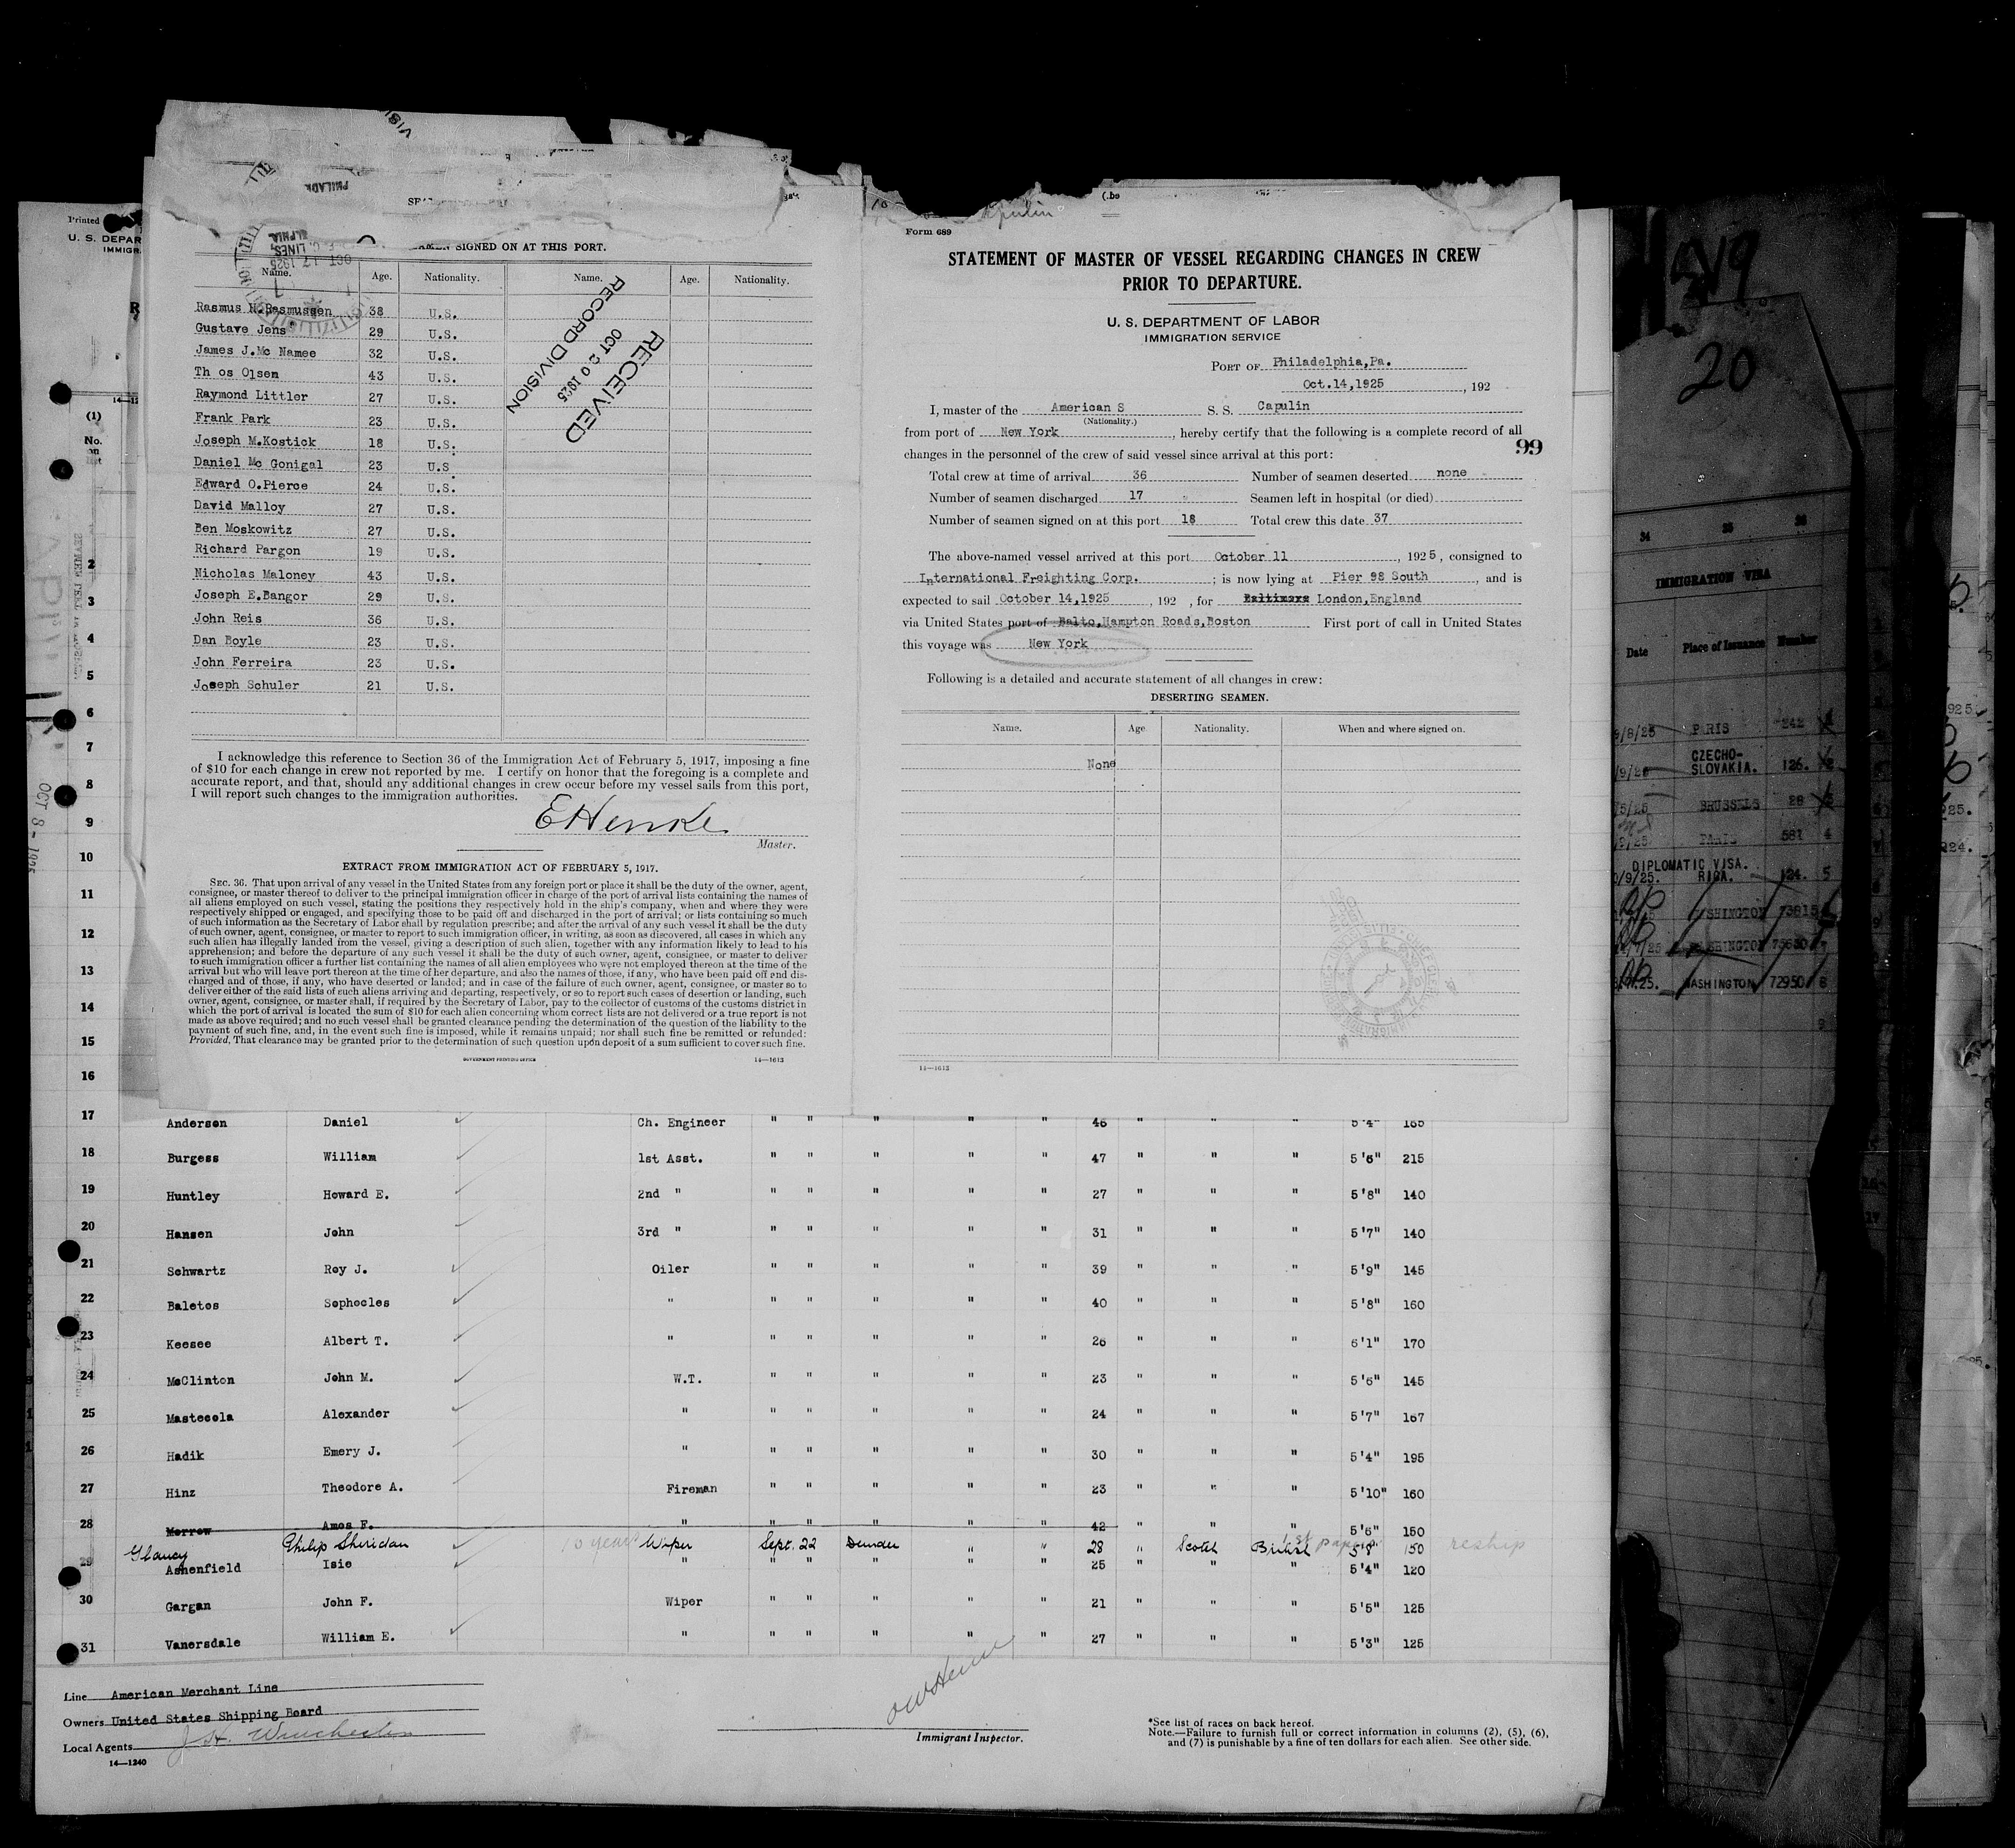 SEAMEN SIGNED ON AT THIS PORT.
Name. Age. Nationality. Name. Age. Nationality.
Rasmus N.Rasmussen 38 U.S.
Gustave Jens 29 U.S.
James J.Mc Namee 32 U.S.
Th os Olsen 43 U.S.
Raymond Littler 27 U.S.
Frank Park 23 U.S.
Joseph M.Kostick 18 U.S.
Daniel Mc Gonigal 23 U.S
Edward O.Pierce 24 U.S.
David Malloy 27 U.S.
Ben Moskowitz 27 U.S.
Richard Pargon 19 U.S.
Nicholas Maloney 43 U.S.
Joseph E.Bangor 29 U.S.
John Reis 36 U.S.
Dan Boyle 23 U.S.
John Ferreira 23 U.S.
Joseph Schuler 21 U.S.
RECEIVED
OCT 20 1925
RECORD DIVISION
I acknowledge this reference to Section 36 of the Immigration Act of February 5, 1917, imposing a fine
of $10 for each change in crew not reported by me. I certify on honor that the foregoing is a complete and
accurate report, and that, should any additional changes in crew occur before my vessel sails from this port,
I will report such changes to the immigration authorities.
E Henke
Master.
EXTRACT FROM IMMIGRATION ACT OF FEBRUARY 5, 1917.
SEC. 36. That upon arrival of any vessel in the United States from any foreign port or place it shall be the duty of the owner, agent,
consignee, or master thereof to deliver to the principal immigration officer in charge of the port of arrival lists containing the names of
all aliens employed on such vessel, stating the positions they respectively hold in the ship's company, when and where they were
respectively shipped or engaged, and specifying those to be paid off and discharged in the port of arrival; or lists containing so much
of such information as the Secretary of Labor shall by regulation prescribe; and after the arrival of any such vessel it shall be the duty
of such owner, agent, consignee, or master to report to such immigration officer, in writing, as soon as discovered, all cases in which any
such alien has illegally landed from the vessel, giving a description of such alien, together with any information likely to lead to his
apprehension; and before the departure of any such vessel it shall be the duty of such owner, agent, consignee, or master to deliver
to such immigration officer a further list containing the names of all alien employees who were not employed thereon at the time of the
arrival but who will leave port thereon at the time of her departure, and also the names of those, if any, who have been paid off and dis-
charged and of those, if any, who have deserted or landed; and in case of the failure of such owner, agent, consignee, or master so to
deliver either of the said lists of such aliens arriving and departing, respectively, or so to report such cases of desertion or landing, such
owner, agent, consignee, or master shall, if required by the Secretary of Labor, pay to the collector of customs of the customs district in
which the port of arrival is located the sum of $10 for each alien concerning whom correct lists are not delivered or a true report is not
made as above required; and no such vessel shall be granted clearance pending the determination of the question of the liability to the
payment of such fine, and, in the event such fine is imposed, while it remains unpaid; nor shall such fine be remitted or refunded:
Provided, That clearance may be granted prior to the determination of such question upon deposit of a sum sufficient to cover such fine.
GOVERNMENT PRINTING OFFICE 14—1613
Form 689
STATEMENT OF MASTER OF VESSEL REGARDING CHANGES IN CREW
PRIOR TO DEPARTURE.
U. S. DEPARTMENT OF LABOR
IMMIGRATION SERVICE
PORT OF Philadelphia,Pa.
Oct.14,1925, 192
I, master of the American S S. S. Capulin
(Nationality.)
from port of New York, hereby certify that the following is a complete record of all
changes in the personnel of the crew of said vessel since arrival at this port:
99
Total crew at time of arrival 36 Number of seamen deserted none
Number of seamen discharged 17 Seamen left in hospital (or died)
Number of seamen signed on at this port 18 Total crew this date 37
The above-named vessel arrived at this port October 11, 1925, consigned to
International Freighting Corp. ; is now lying at Pier 98 South, and is
expected to sail October 14,1925, 192 , for Baltimore London,England
via United States port of Balto,Hampton Roads,Boston First port of call in United States
this voyage was New York
Following is a detailed and accurate statement of all changes in crew:
DESERTING SEAMEN.
Name. Age Nationality. When and where signed on.
None
14—1613
Printed
U. S. DEPAR
IMMIGR
(1)
No.
on
list
2
3
4
5
6
7
8
9
10
11
12
13
14
15
16
17 Anderson Daniel Ch. Engineer " " " " " 46 " " " 5'4" 185
18 Burgess William 1st Asst. " " " " " 47 " " " 5'6" 215
19 Huntley Howard E. 2nd " " " " " " 27 " " " 5'8" 140
20 Hansen John 3rd " " " " " " 31 " " " 5'7" 140
21 Schwartz Roy J. Oiler " " " " " 39 " " " 5'9" 145
22 Baletos Sophocles " " " " " " 40 " " " 5'8" 160
23 Keesee Albert T. " " " " " " 26 " " " 6'1" 170
24 McClinton John M. W.T. " " " " " 23 " " " 5'6" 145
25 Mastecola Alexander " " " " " " 24 " " " 5'7" 167
26 Hadik Emery J. " " " " " " 30 " " " 5'4" 195
27 Hinz Theodore A. Fireman " " " " " 23 " " " 5'10" 160
28 Morrow Amos F. " " " " " " 42 " " " 5'6" 150
Glancy Philip Sheridan 10 years Wiper Sept. 22 Dundee " " 28 " Scotch British 1st papers 5'8 150 reship
29 Ashenfield Isie " " " " " " 25 " " " 5'4" 120
30 Gargan John F. Wiper " " " " " 21 " " " 5'5" 125
31 Vanersdale William E. " " " " " " 27 " " " 5'3" 125
Line American Merchant Line
Owners United States Shipping Board
Local Agents J. H. Winchester
14—1240
Immigrant Inspector.
*See list of races on back hereof.
Note.—Failure to furnish full or correct information in columns (2), (5), (6),
and (7) is punishable by a fine of ten dollars for each alien. See other side.
OCT 8- 1925
20
34 35 36
IMMIGRATION VISA
Date Place of Issuance Number
PARIS 242
CZECHO-
SLOVAKIA. 126.
BRUSSELS 28
PARIS 581 4
DIPLOMATIC VISA.
RIGA. 124. 5
WASHINGTON 72950 8